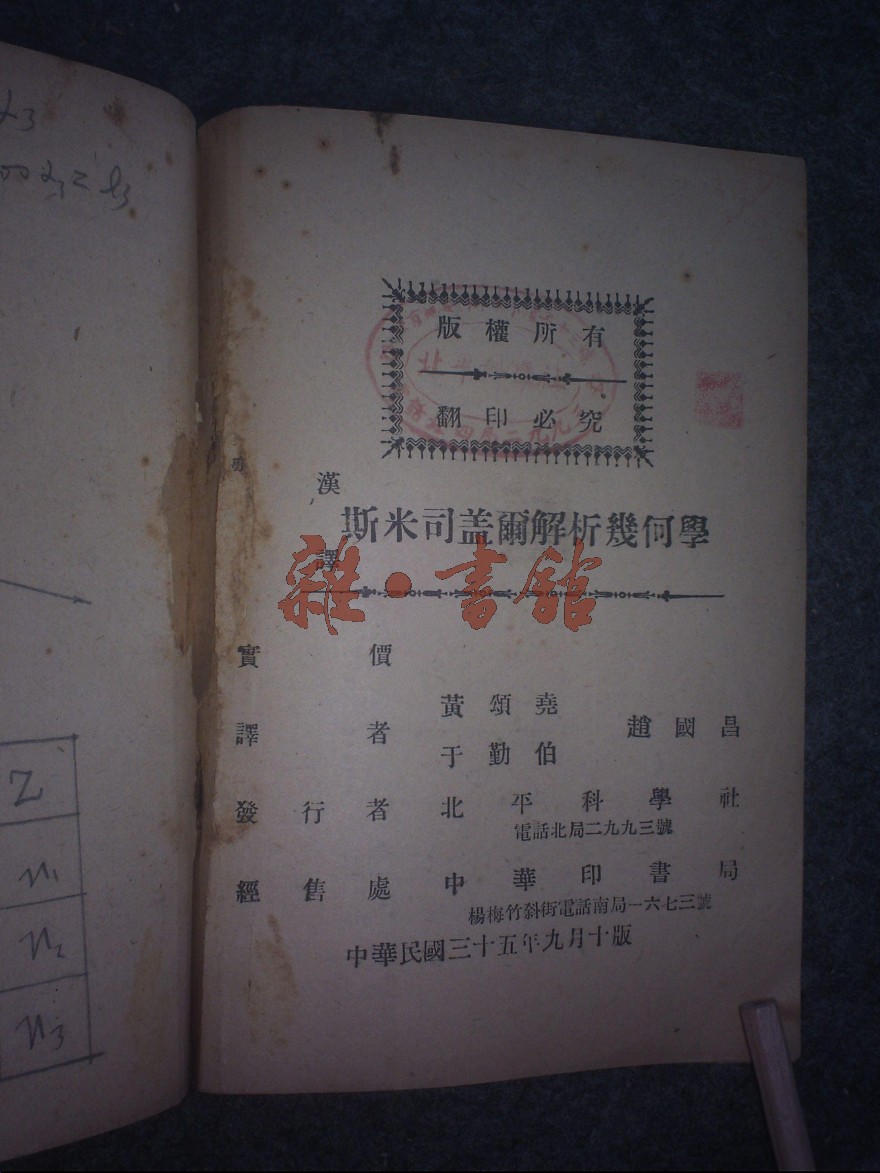 版權所有
翻印必究
漢譯
斯米司盖爾解析幾何學
雜·書館
實價
譯者 黃頌堯 趙國昌
于勤伯
發行者 北平科學社
電話北局二九九三號
經售處 中華印書局
楊梅竹斜街電話南局一六七三號
中華民國三十五年九月十版
Z
n1
n2
n3